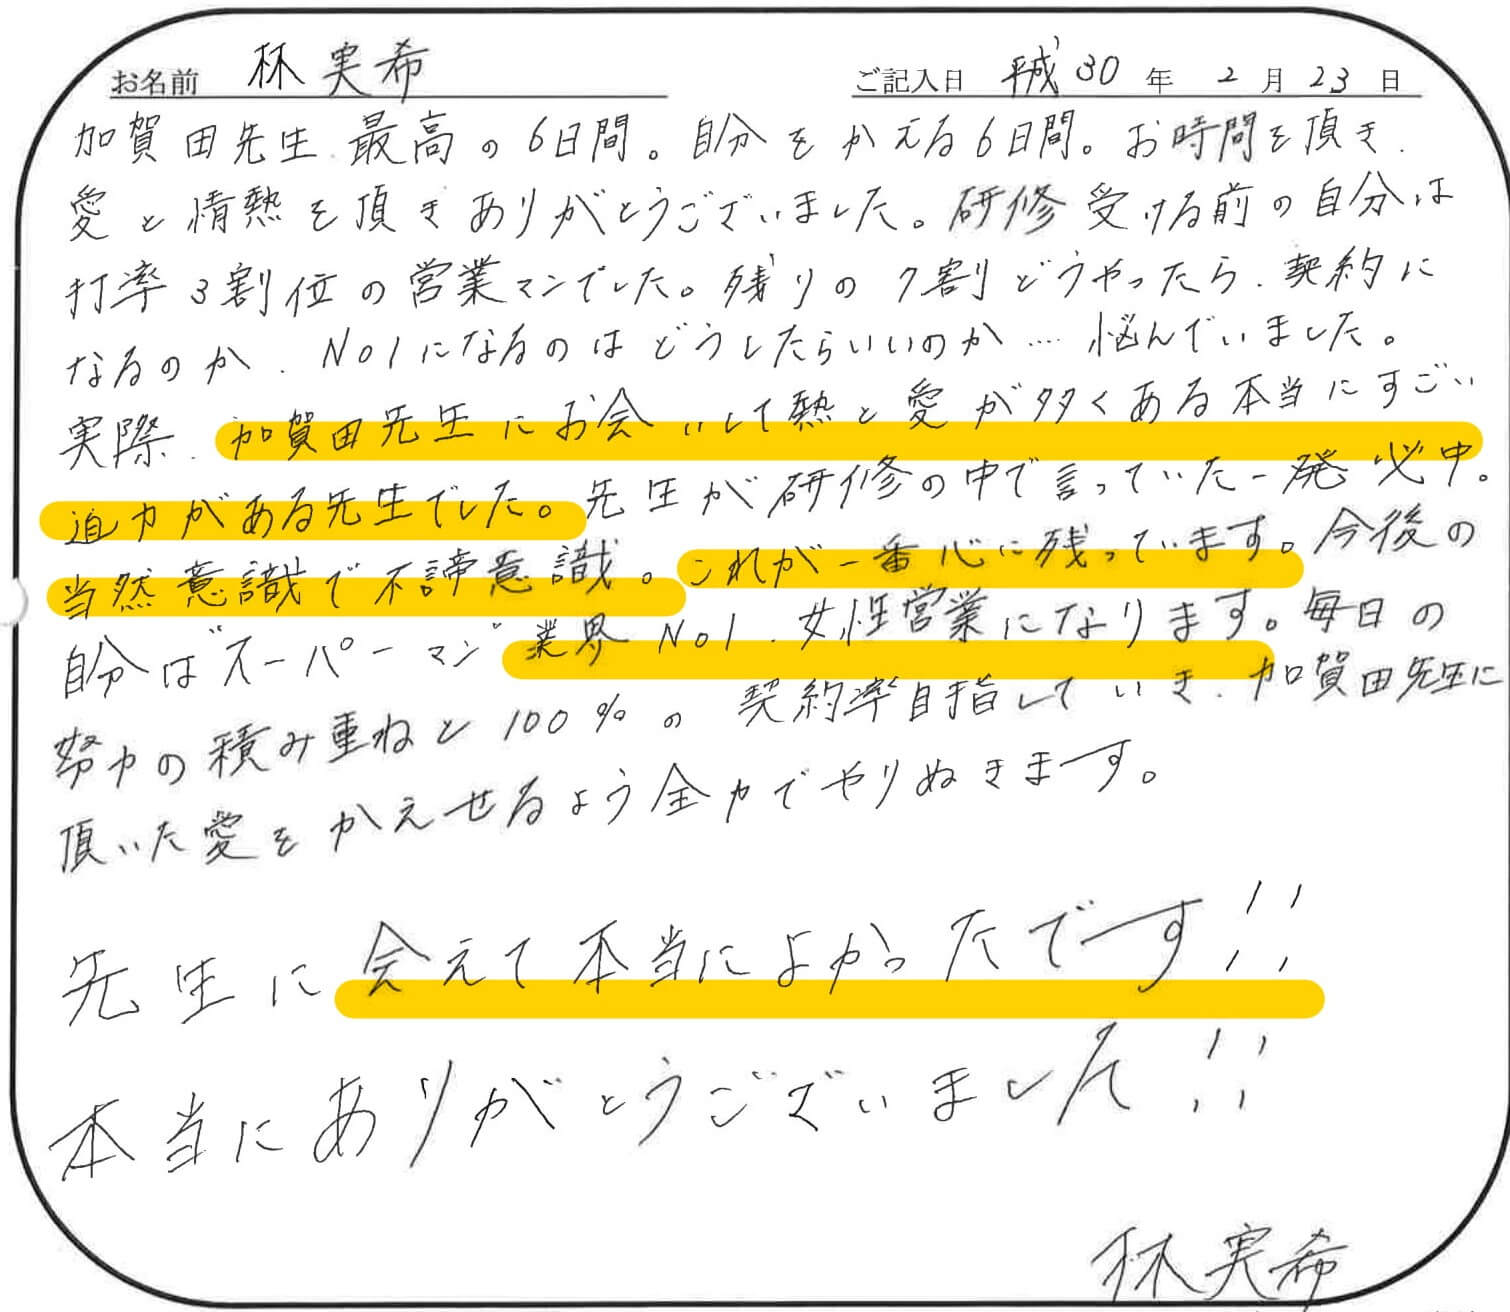 お名前 林 実希
ご記入日 平成30年 2月23日
加賀田先生 最高の6日間。自分をかえる6日間。お時間を頂き、
愛と情熱を頂きありがとうございました。研修受ける前の自分は
打率3割位の営業マンでした。残りの7割どうやったら、契約に
なるのか、No1になるのはどうしたらいいのか…. 悩んでいました。
実際、加賀田先生にお会いして熱と愛が多くある本当にすごい
迫力がある先生でした。先生が研修の中で言っていた一発必中。
当然意識で不諦意識。これが一番心に残っています。今後の
自分は"スーパーマン"業界No1、女性営業になります。毎日の
努力の積み重ねと100%の契約率目指していき、加賀田先生に
頂いた愛をかえせるよう全力でやりぬきます。
先生に会えて本当によかったです!!
本当にありがとうございました!!
林実希